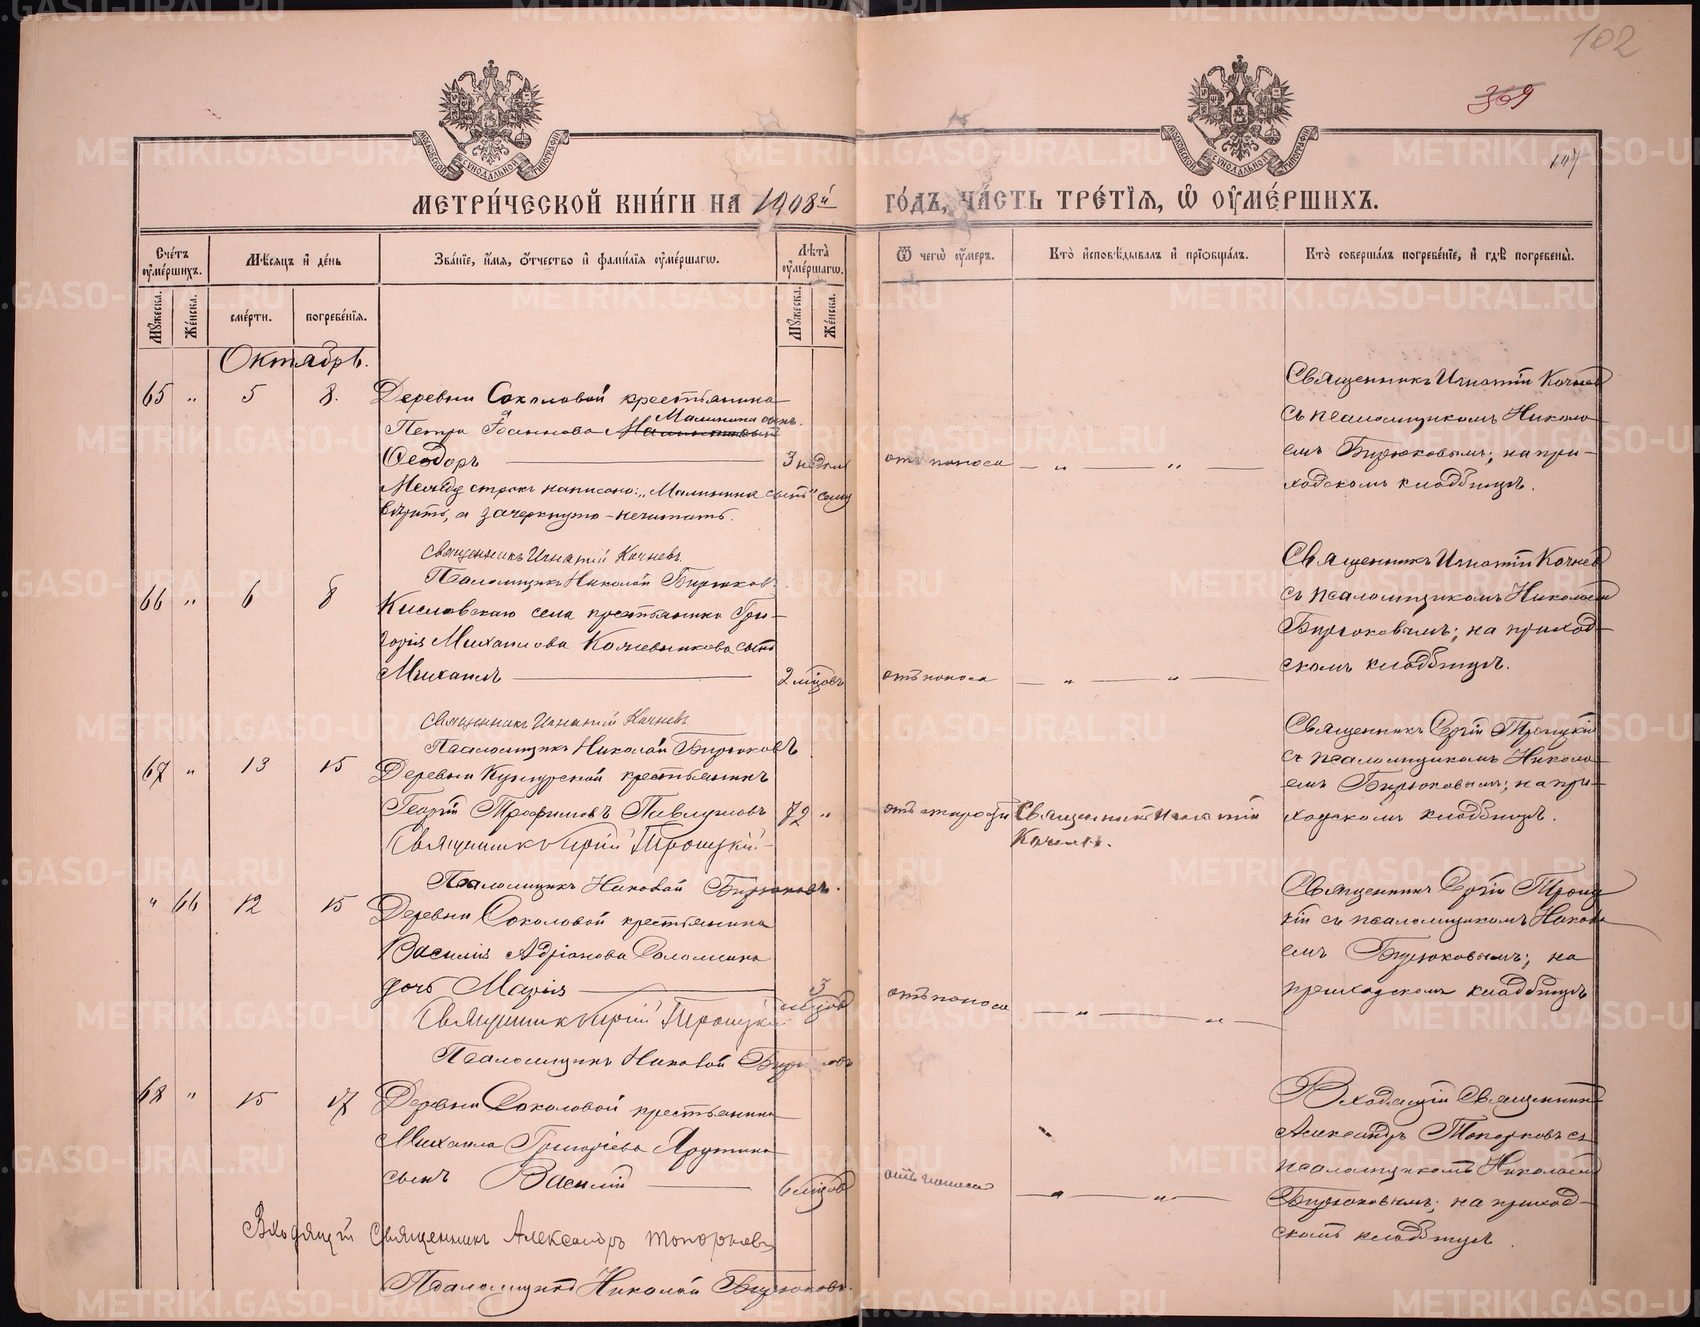 102
369
107
МЕТРИ́ЧЕСКОЙ КНИ́ГИ НА 1908й ГО́ДЪ, ЧА́СТЬ ТРЕ́ТІЯ, Ѿ ОУМЕ́РШИХЪ.
Сче́тъ оуме́ршихъ.
Мѣ́сяцъ и де́нь
Зва́ніе, и́мя, о́тчество и фами́лія оуме́ршагѡ.
Лѣ́та оуме́ршагѡ.
Ѿ чегѡ̀ оу́меръ.
Кто̀ исповѣ́дывалъ и пріобща́лъ.
Кто̀ соверша́лъ погребе́ніе, и гдѣ̀ погребены̀.
Му́жеска.
Же́нска.
сме́рти.
погребе́нія.
Му́жеска.
Же́нска.
Октябрь.
65 " 5 8.
Деревни Соколовой крестьянина
Малинина сынъ.
Петра Іоаннова
Ѳеодоръ — 3 недѣли
Между строкъ написано: „Малинина сынъ" сему
вѣрить, а зачеркнуто - нечитать.
Священникъ Игнатій Кочневъ.
Псаломщикъ Николай Бирюковъ.
отъ поноса — " — " —
Священникъ Игнатій Кочнев
съ псаломщикомъ Никола-
емъ Бирюковымъ; на при-
ходскомъ кладбищѣ.
66 " 6 8
Кисловскаго села крестьянина Гри-
горія Михаилова Кожевникова сынъ
Михаилъ — 2 мѣсцовъ
Священникъ Игнатій Кочневъ
Псаломщикъ Николай Бирюковъ
отъ поноса — " — " —
Священникъ Игнатій Кочнев
съ псаломщикомъ Николаемъ
Бирюковымъ; на приход-
скомъ кладбищѣ.
67 " 13 15
Деревни крестьянинъ
Георгій Трофимовъ Павлушовъ 72 "
Священникъ Сергій Троицкій
Псаломщикъ Николай Бирюковъ.
отъ старости
Священникъ Игнатій
Кочневъ.
Священникъ Сергій Троицкій
съ псаломщикомъ Никола-
емъ Бирюковымъ; на при-
ходскомъ кладбищѣ.
" 66 12 15
Деревни Соколовой крестьянина
Василія Адріанова Соломина
дочь Марія — 3 мѣсцов
Священникъ Сергій Троицкій
Псаломщикъ Николай Бирюковъ
отъ поноса — " — " —
Священникъ Сергій Троиц
кій съ псаломщикомъ Никола
емъ Бирюковымъ; на
приходскомъ кладбищѣ
68 " 15 17
Деревни Соколовой крестьянина
Михаила Григоріева Ярутина
сынъ Василій — 6 мѣсцов
Входящій Священникъ Александръ Топорковъ
Псаломщикъ Николай Бирюковъ.
отъ поноса — " — " —
Входящій Священникъ
Александръ Топорковъ съ
псаломщикомъ Николаемъ
Бирюковымъ; на приход-
скомъ кладбищѣ.
METRIKI.GASO-URAL.RU